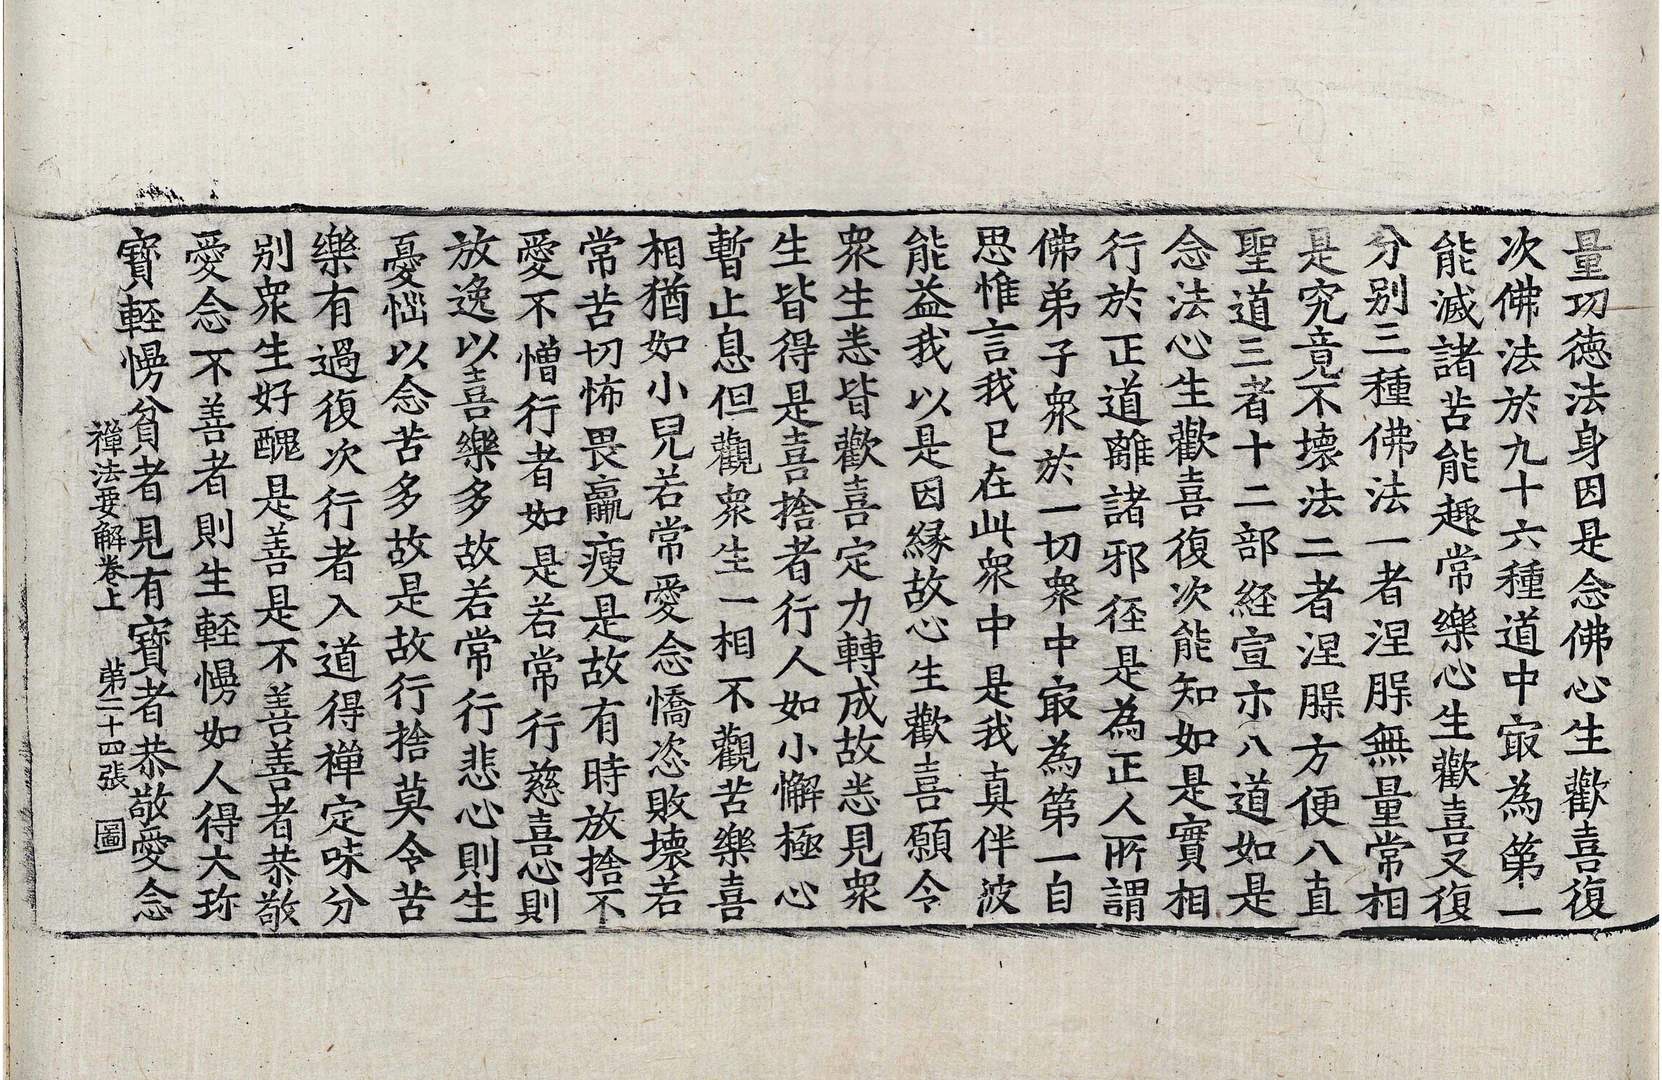 量功德法身因是念佛心生歡喜復
次佛法於九十六種道中㝡為第一
能滅諸苦能趣常樂心生歡喜又復
分別三種佛法一者涅槃無量常相
是究竟不壞法二者涅槃方便八直
聖道三者十二部経宣示八道如是
念法心生歡喜復次能知如是實相
行於正道離諸邪徑是為正人所謂
佛弟子衆於一切衆中㝡為第一自
思惟言我已在此衆中是我真伴波
能益我以是因緣故心生歡喜願令
衆生悉皆歡喜定力轉成故悉見衆
生皆得是喜捨者行人如小懈極心
暫止息但觀衆生一相不觀苦樂喜
相猶如小兒若常愛念憍恣敗壞若
常苦切怖畏羸瘦是故有時放捨不
愛不憎行者如是若常行慈喜心則
放逸以喜樂多故若常行悲心則生
憂惱以念苦多故是故行捨莫令苦
樂有過復次行者入道得禅定味分
別衆生好醜是善是不善善者恭敬
愛念不善者則生輕慢如人得大珎
寶輕慢貧者見有寶者恭敬愛念
禪法要解卷上 第二十四張 圖